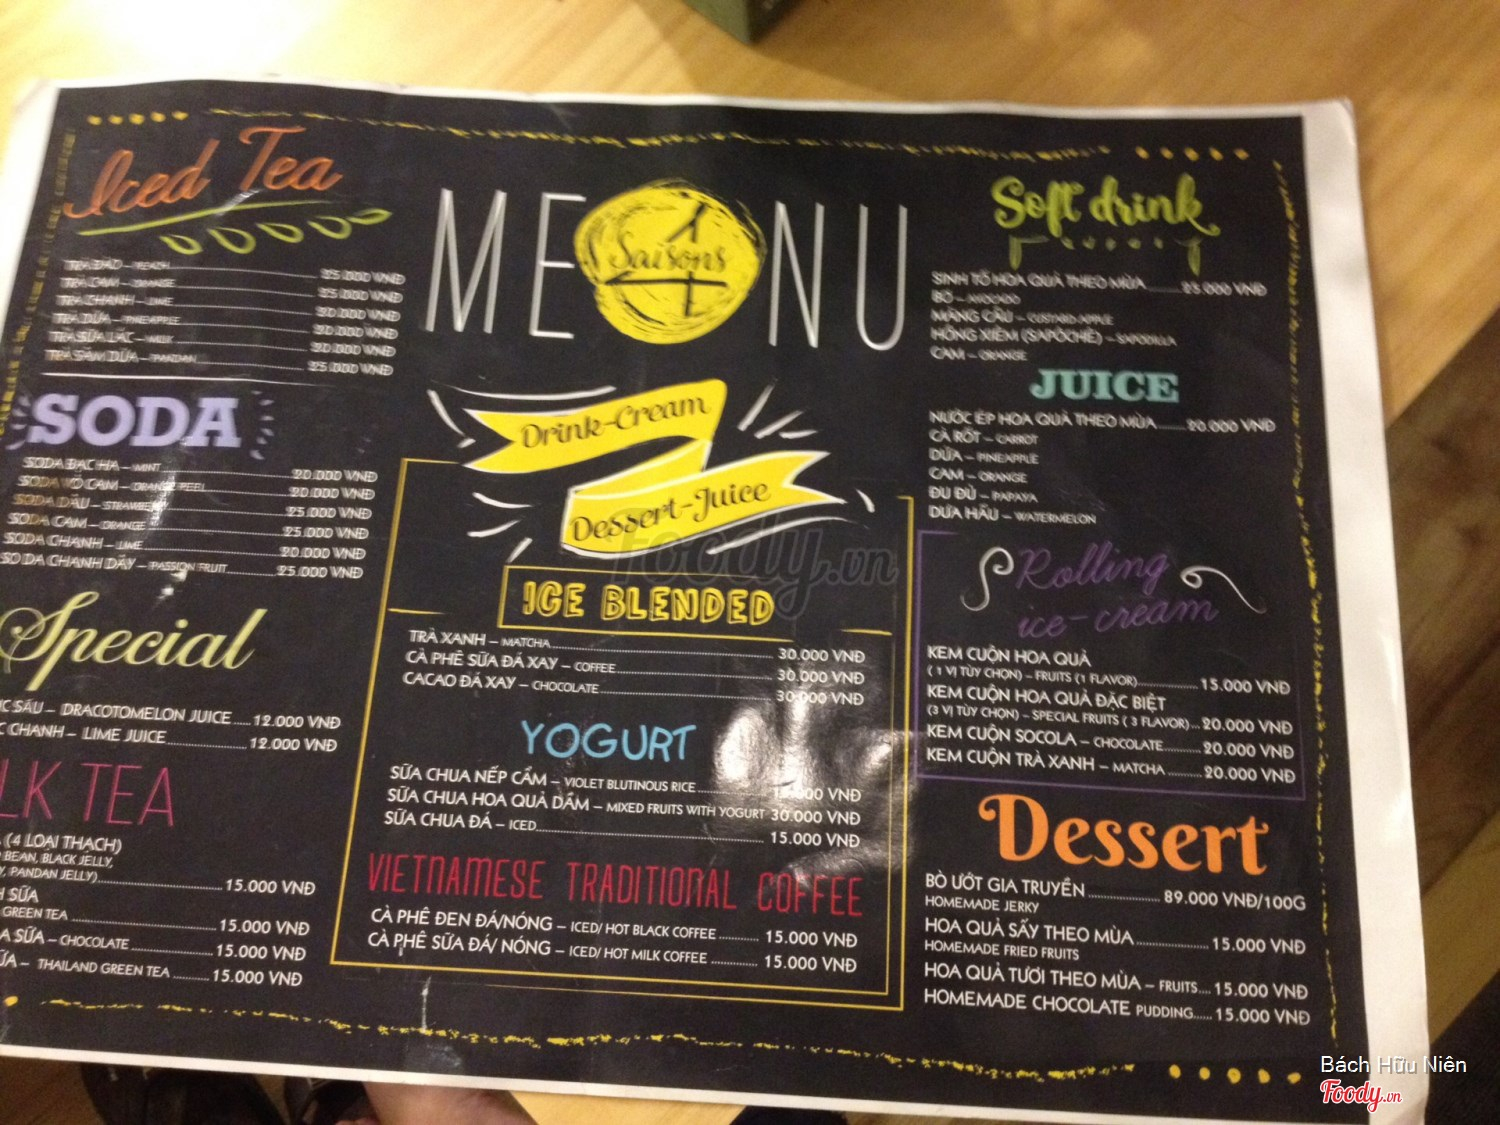 Iced Tea
TRÀ ĐÀO – PEACH 25.000 VNĐ
TRÀ CAM – ORANGE 25.000 VNĐ
TRÀ CHANH – LIME 20.000 VNĐ
TRÀ DỨA – PINEAPPLE 20.000 VNĐ
TRÀ SỮA LẮC – MILK 20.000 VNĐ
TRÀ SÂM DỨA – PANDAN 25.000 VNĐ
SODA
SODA BẠC HÀ – MINT 20.000 VNĐ
SODA VỎ CAM – ORANGE PEEL 20.000 VNĐ
SODA DÂU – STRAWBERRY 25.000 VNĐ
SODA CAM – ORANGE 25.000 VNĐ
SODA CHANH – LIME 20.000 VNĐ
SODA CHANH DÂY – PASSION FRUIT 25.000 VNĐ
Special
SẤU – DRACOTOMELON JUICE 12.000 VNĐ
CHANH – LIME JUICE 12.000 VNĐ
LK TEA
(4 LOẠI THẠCH)
BEAN, BLACK JELLY,
PANDAN JELLY) 15.000 VNĐ
SỮA
GREEN TEA 15.000 VNĐ
SỮA – CHOCOLATE 15.000 VNĐ
– THAILAND GREEN TEA 15.000 VNĐ
MENU
4 Saisons
Drink-Cream
Dessert-Juice
ICE BLENDED
TRÀ XANH – MATCHA 30.000 VNĐ
CÀ PHÊ SỮA ĐÁ XAY – COFFEE 30.000 VNĐ
CACAO ĐÁ XAY – CHOCOLATE 30.000 VNĐ
YOGURT
SỮA CHUA NẾP CẨM – VIOLET BLUTINOUS RICE 15.000 VNĐ
SỮA CHUA HOA QUẢ DẦM – MIXED FRUITS WITH YOGURT 30.000 VNĐ
SỮA CHUA ĐÁ – ICED 15.000 VNĐ
VIETNAMESE TRADITIONAL COFFEE
CÀ PHÊ ĐEN ĐÁ/NÓNG – ICED/ HOT BLACK COFFEE 15.000 VNĐ
CÀ PHÊ SỮA ĐÁ/ NÓNG – ICED/ HOT MILK COFFEE 15.000 VNĐ
Soft drink
SINH TỐ HOA QUẢ THEO MÙA 25.000 VNĐ
BƠ – AVOCADO
MÃNG CẦU – CUSTARD APPLE
HỒNG XIÊM (SAPÔCHÊ) – SAPODILLA
CAM – ORANGE
JUICE
NƯỚC ÉP HOA QUẢ THEO MÙA 20.000 VNĐ
CÀ RỐT – CARROT
DỨA – PINEAPPLE
CAM – ORANGE
ĐU ĐỦ – PAPAYA
DƯA HẤU – WATERMELON
Rolling
ice-cream
KEM CUỘN HOA QUẢ
( 1 VỊ TÙY CHỌN) – FRUITS (1 FLAVOR) 15.000 VNĐ
KEM CUỘN HOA QUẢ ĐẶC BIỆT
(3 VỊ TÙY CHỌN) – SPECIAL FRUITS ( 3 FLAVOR) 20.000 VNĐ
KEM CUỘN SOCOLA – CHOCOLATE 20.000 VNĐ
KEM CUỘN TRÀ XANH – MATCHA 20.000 VNĐ
Dessert
BÒ ƯỚT GIA TRUYỀN 89.000 VNĐ/100G
HOMEMADE JERKY
HOA QUẢ SẤY THEO MÙA 15.000 VNĐ
HOMEMADE FRIED FRUITS
HOA QUẢ TƯƠI THEO MÙA – FRUITS 15.000 VNĐ
HOMEMADE CHOCOLATE PUDDING 15.000 VNĐ
Foody.vn
Bách Hữu Niên
Foody.vn